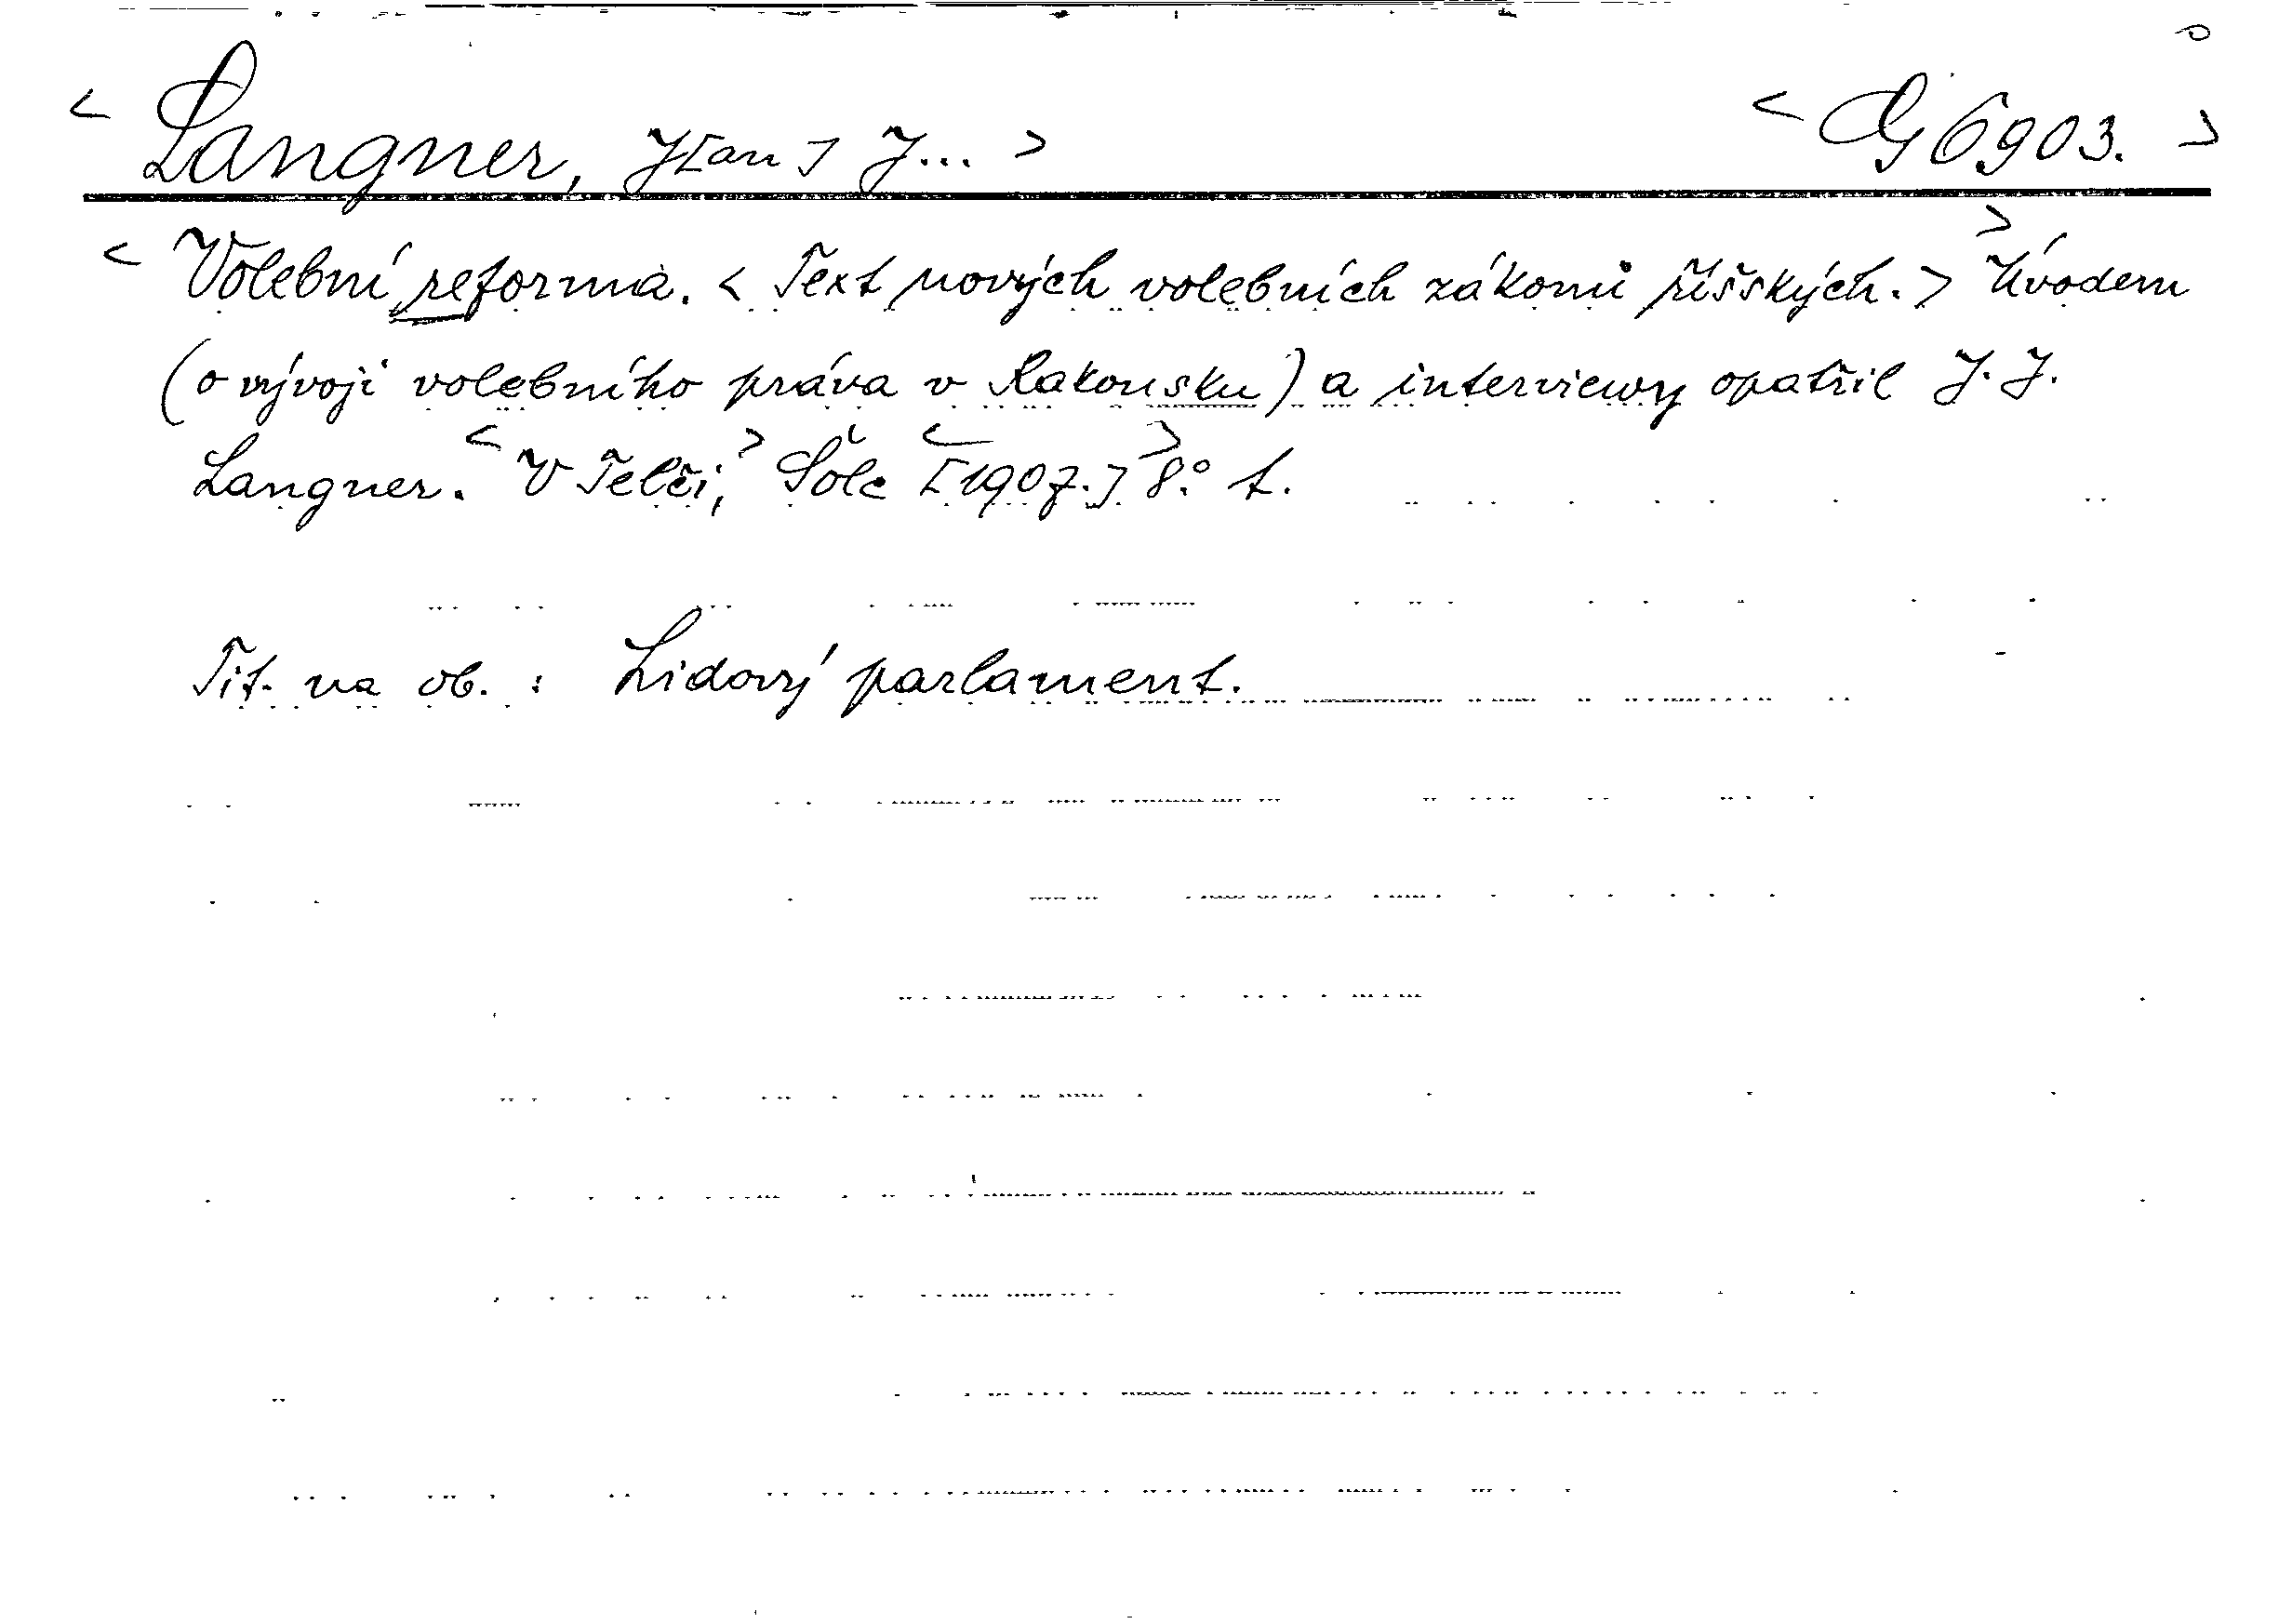 < Langner, J[an] J... > < G 6903. >
< Volební reforma. < Text nových volebních zákonů říšských. > > Úvodem
(o vývoji volebního práva v Rakousku) a interviewy opatřil J. J.
Langner. < V Telči, > Šolc < [1907.] > 8.° t.
Tit. na ob. : Lidový parlament.